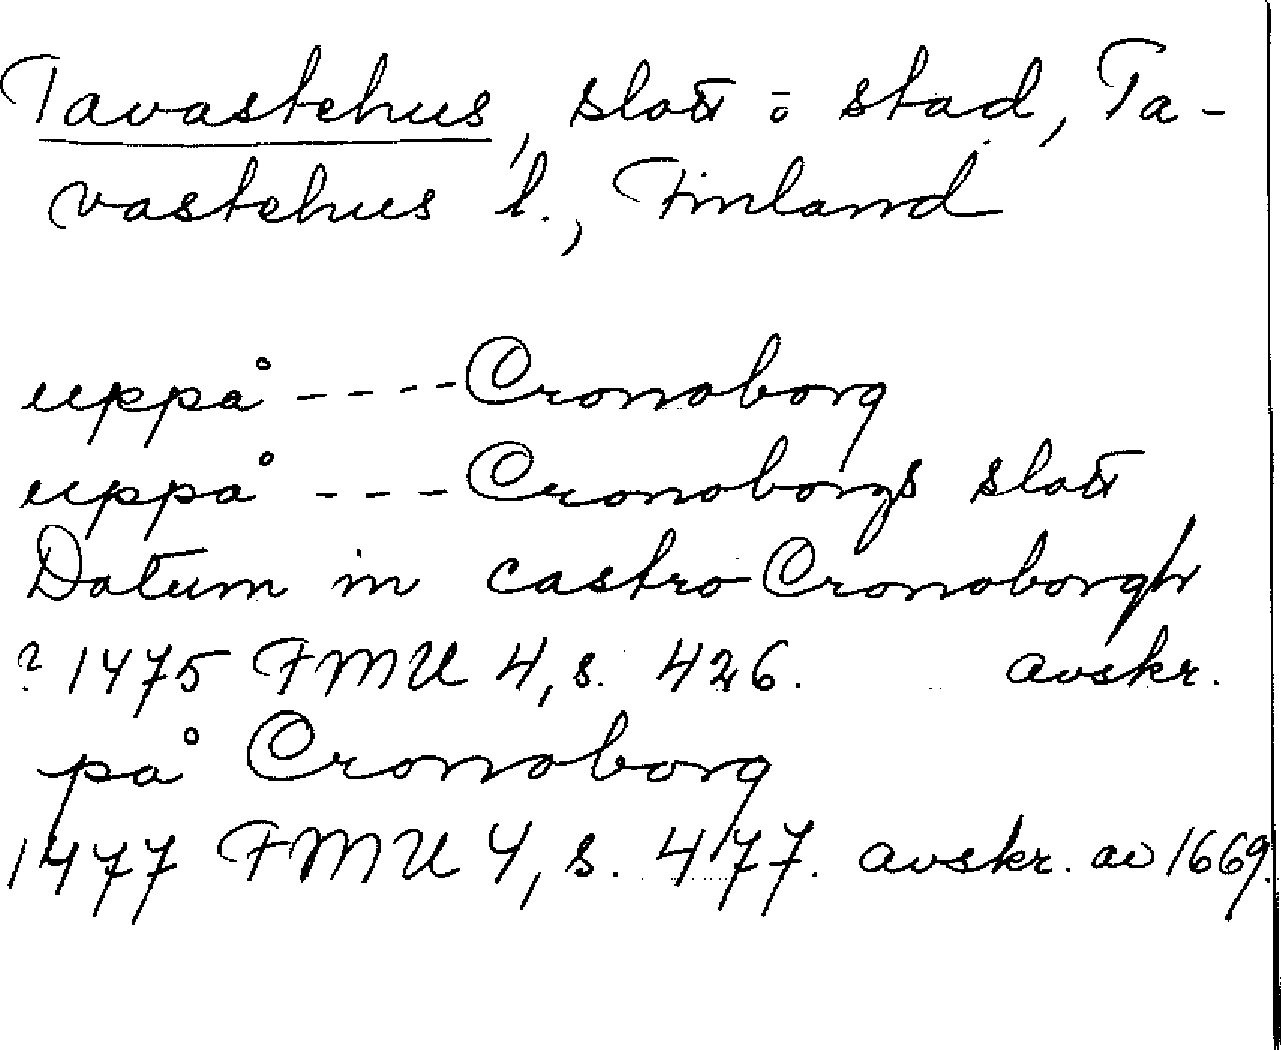 Tavastehus, slott o stad, Ta-
vastehus l., Finland
uppå ----Cronoborg
uppå ---Cronoborgs slott
Datum in castro Cronoborgh
? 1475 FMU 4, s. 426. avskr.
på Cronoborg
1477 FMU 4, s. 477. avskr. av 1669.